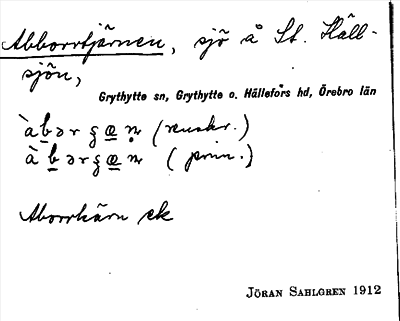 Abborrtjärnen, sjö å St. Häll-
sjön,
Grythytte sn, Grythytte o. Hällefors hd, Örebro län
(ruskr.)
(prin.)
Aborrkärn ek
JÖRAN SAHLGREN 1912